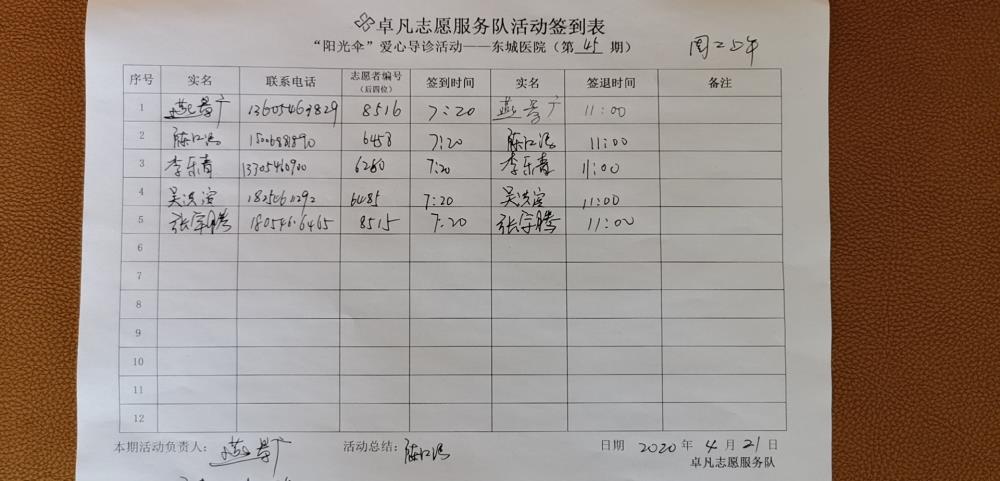 卓凡志愿服务队活动签到表
“阳光伞”爱心导诊活动——东城医院（第 45 期）
周二上午
序号 实名 联系电话 志愿者编号（后四位） 签到时间 实名 签退时间 备注
1 燕景广 13605463829 8516 7:20 燕景广 11:00
2 陈江涛 6458 7:20 陈江涛 11:00
3 李乐青 13305460900 6280 7:20 李乐青 11:00
4 吴洪滨 6485 7:20 吴洪滨 11:00
5 张宇腾 18054606465 8515 7:20 张宇腾 11:00
6
7
8
9
10
11
12
本期活动负责人： 燕景广 活动总结： 陈江涛 日期 2020 年 4 月 21 日
卓凡志愿服务队